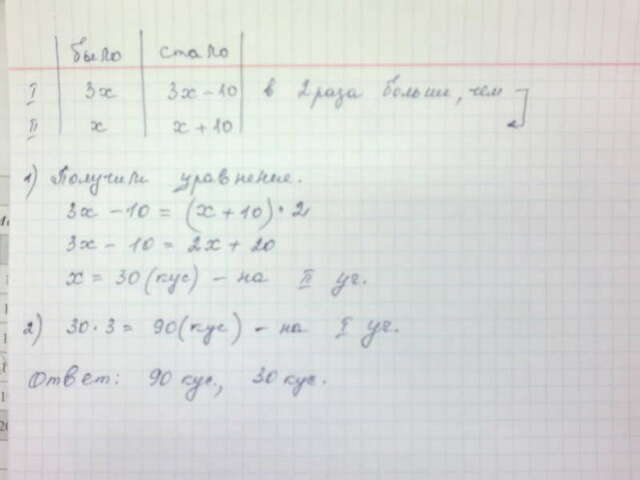 было стало
I 3x 3x - 10 в 2 раза больше, чем
II x x + 10
1) Получили уравнение.
3x - 10 = (x + 10) · 2
3x - 10 = 2x + 20
x = 30 (кус) - на II уч.
2) 30 · 3 = 90 (кус) - на I уч.
Ответ: 90 кус., 30 кус.